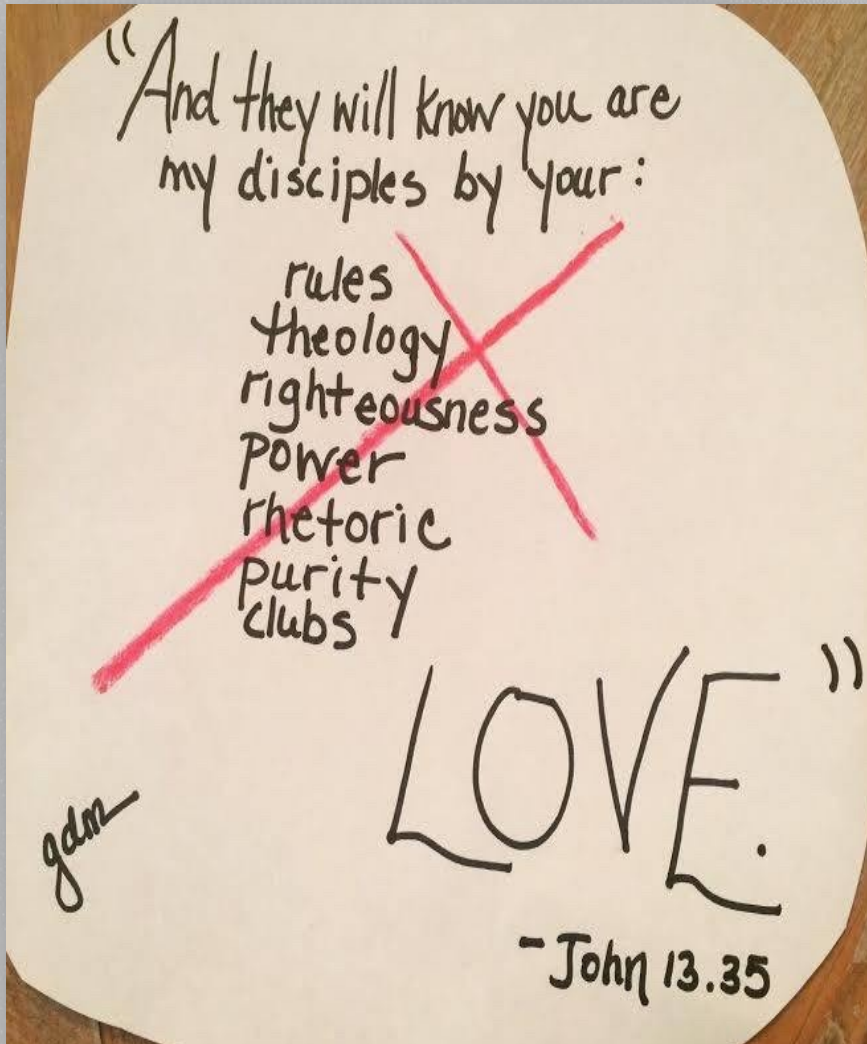 "And they will know you are
my disciples by your:
rules
theology
righteousness
power
rhetoric
purity
clubs
LOVE."
gdm
-John 13.35